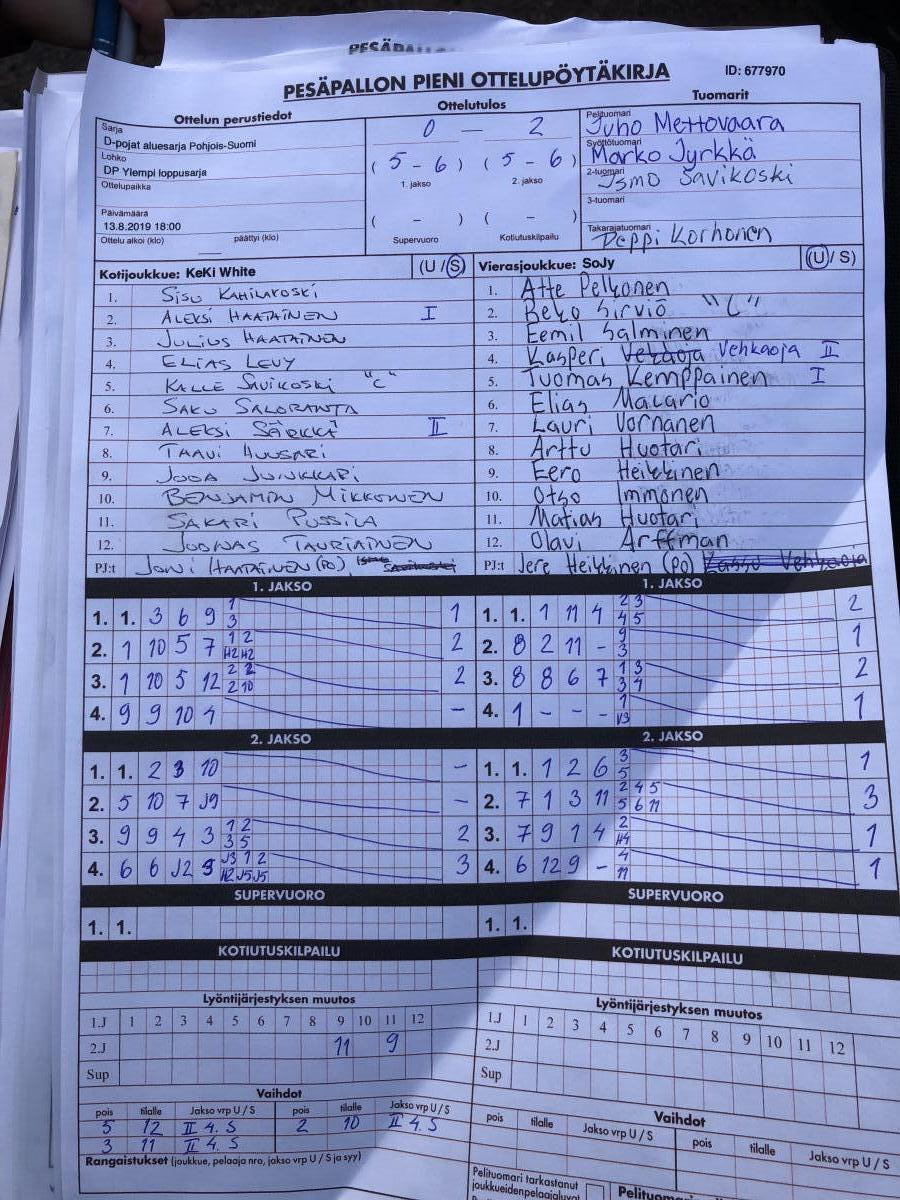 PESÄPALLON PIENI OTTELUPÖYTÄKIRJA
ID: 677970
Ottelun perustiedot
Sarja
D-pojat aluesarja Pohjois-Suomi
Lohko
DP Ylempi loppusarja
Ottelupaikka
Päivämäärä
13.8.2019 18:00
Ottelu alkoi (klo) päättyi (klo)
Ottelutulos
0 — 2
( 5 - 6 ) ( 5 - 6 )
1. jakso 2. jakso
( - ) ( - )
Supervuoro Kotiutuskilpailu
Tuomarit
Pelituomari
Juho Mettovaara
Syöttötuomari
Marko Jyrkkä
2-tuomari
Ismo Savikoski
3-tuomari
Takarajatuomari
Peppi Korhonen
Kotijoukkue: KeKi White (U / S)
1. SISU KAHILAKOSKI
2. ALEKSI HAATAINEN I
3. JULIUS HAATAINEN
4. ELIAS LEVY
5. KALLE SAVIKOSKI "C"
6. SAKU SALORANTA
7. ALEKSI SÄRKKÄ II
8. TAAVI HUUSARI
9. JOOA JUNKKARI
10. BENJAMIN MIKKONEN
11. SAKARI PUSSILA
12. JOONAS TAURIAINEN
PJ:t JONI HAATAINEN (PO),
Vierasjoukkue: SoJy (U / S)
1. Atte Pelkonen
2. Reko Sirviö "C"
3. Eemil Salminen
4. Kasperi Vehkaoja II
5. Tuomas Kemppainen I
6. Elias Macario
7. Lauri Vornanen
8. Arttu Huotari
9. Eero Heikkinen
10. Otso Immonen
11. Matias Huotari
12. Olavi Arffman
PJ:t Jere Heikkinen (PO)
1. JAKSO
1. 1. 3 6 9 1 3 1
2. 1 10 5 7 1 2 H2 H2 2
3. 1 10 5 12 2 2 2 10 2
4. 9 9 10 4 –
1. JAKSO
1. 1. 1 11 4 2 3 4 5 2
2. 8 2 11 - 9 3 1
3. 8 8 6 7 1 3 3 4 2
4. 1 - - - 1 V3 1
2. JAKSO
1. 1. 2 3 10 –
2. 5 10 7 J9 –
3. 9 9 4 3 1 2 3 5 2
4. 6 6 J2 9 J3 1 2 H2 J5 J5 3
2. JAKSO
1. 1. 1 2 6 3 5 1
2. 7 1 3 11 2 4 5 5 6 11 3
3. 7 9 1 4 2 H4 1
4. 6 12 9 - 4 11 1
SUPERVUORO
1. 1.
SUPERVUORO
1. 1.
KOTIUTUSKILPAILU
KOTIUTUSKILPAILU
Lyöntijärjestyksen muutos
1.J 1 2 3 4 5 6 7 8 9 10 11 12
2.J 11 9
Sup
Lyöntijärjestyksen muutos
1.J 1 2 3 4 5 6 7 8 9 10 11 12
2.J
Sup
Vaihdot
pois tilalle Jakso vrp U / S pois tilalle Jakso vrp U / S
5 12 II 4. S 2 10 II 4. S
3 11 II 4. S
Rangaistukset (joukkue, pelaaja nro, jakso vrp U / S ja syy)
Vaihdot
pois tilalle Jakso vrp U / S pois tilalle Jakso vrp U / S
Pelituomari tarkastanut
joukkueidenpelaajaluvot